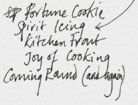 Fortune Cookie
Spirit Icing
Kitchen Front
Joy of Cooking
Coming Round (and again)